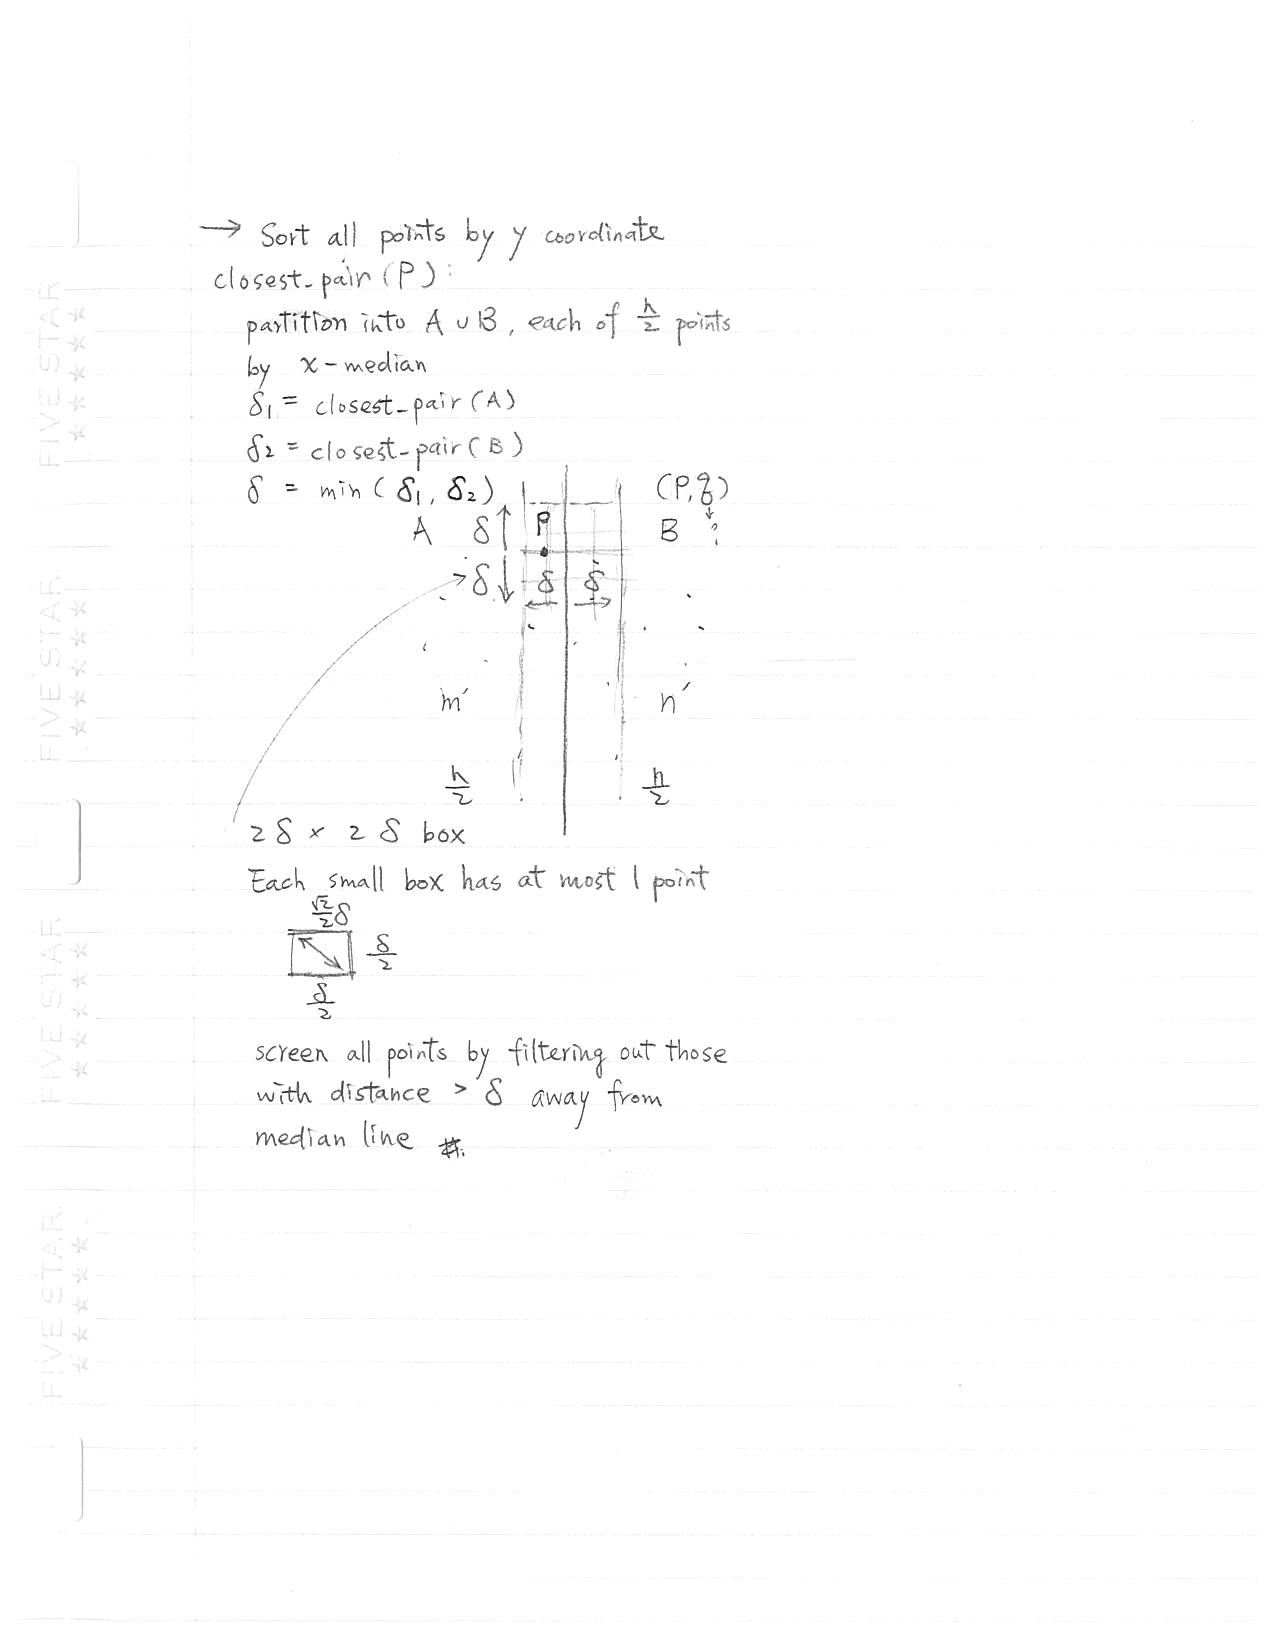 → Sort all points by y coordinate
closest-pair (P):
partition into A ∪ B, each of n/2 points
by x-median
δ₁ = closest-pair (A)
δ₂ = closest-pair (B)
δ = min (δ₁, δ₂)
(P, q)
A δ P B ?
δ δ δ
m′ n′
n/2 n/2
2δ × 2δ box
Each small box has at most 1 point
√2/2 δ
δ/2
δ/2
screen all points by filtering out those
with distance > δ away from
median line #.
FIVE STAR
★★★★★
FIVE STAR
★★★★★
FIVE STAR
★★★★★
FIVE STAR
★★★★★